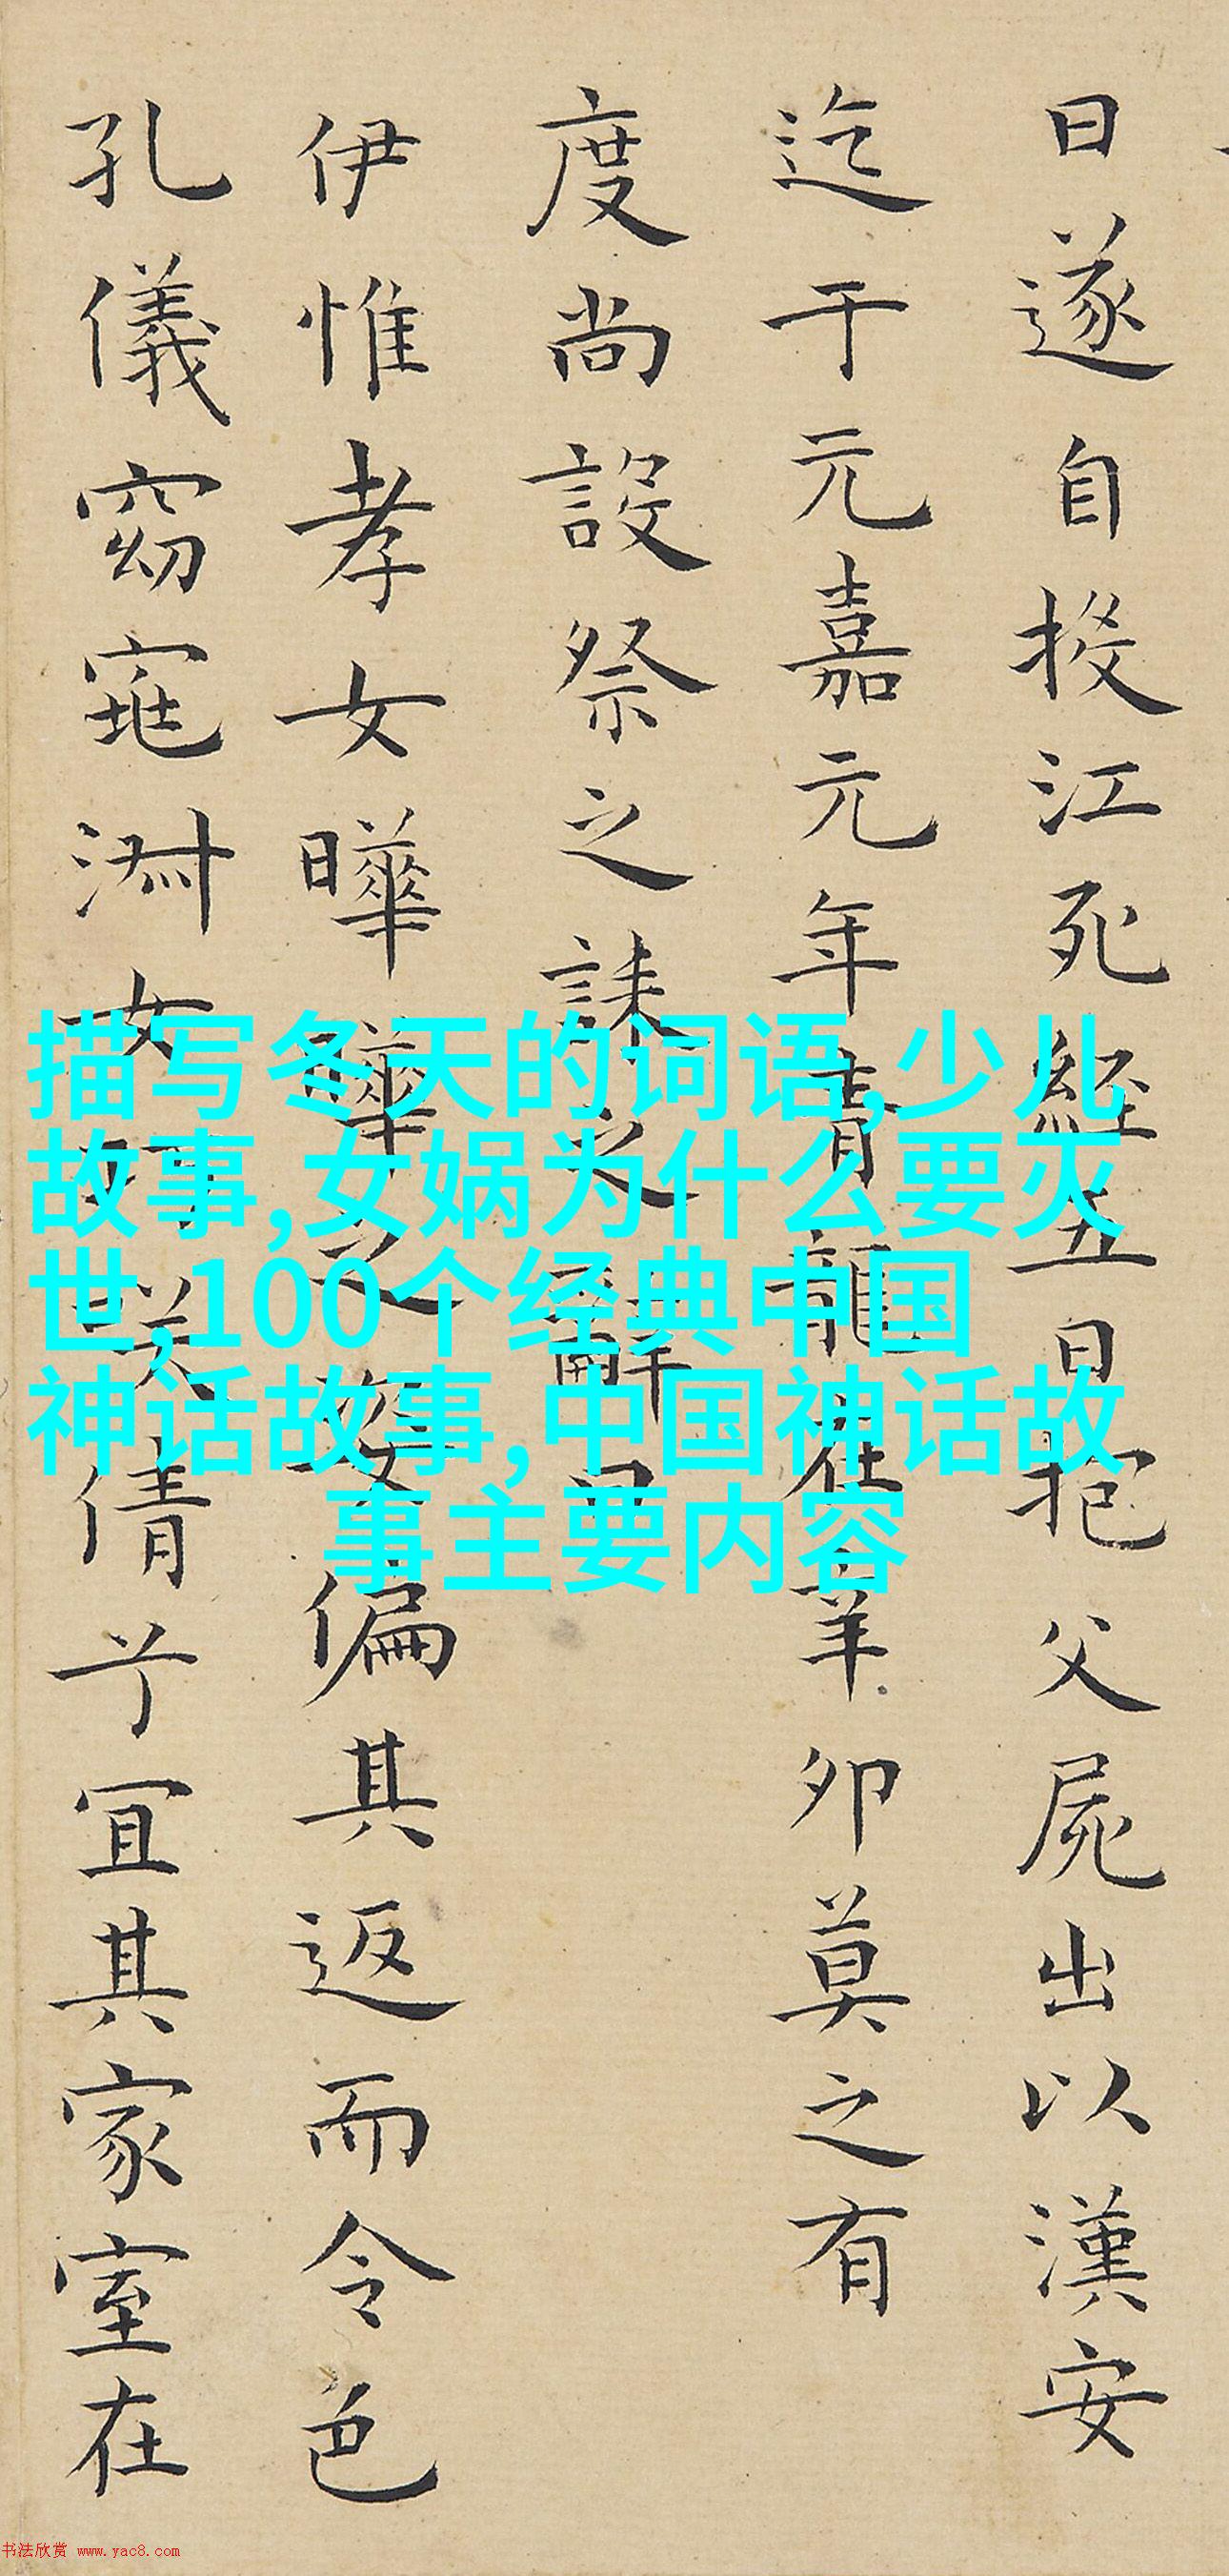 日遂自投江死經五日抱父屍出以漢安
迄于元嘉元年青龍在辛卯莫之有
度尚設祭之誄之辭曰
伊惟孝女曄曄之姿偏其返而令色
孔儀窈窕淑女巧笑倩兮宜其家室在
描写冬天的词语,少儿
故事,女娲为什么要灭
世,100个经典中国
神话故事,中国神话故
事主要内容
书法欣赏 www.yac8.com